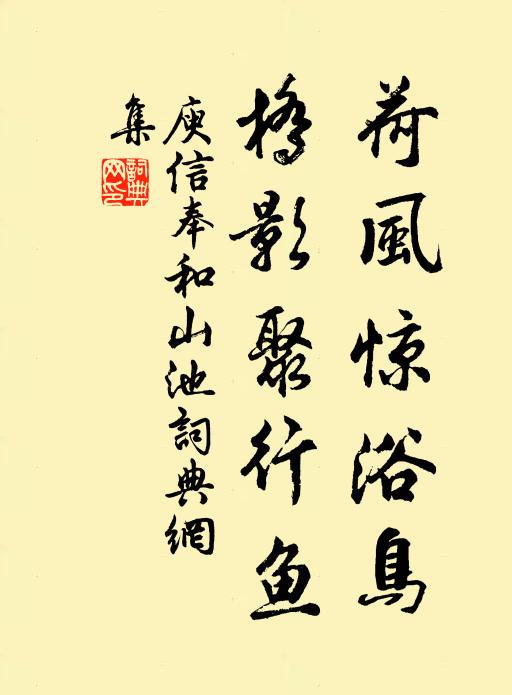 荷風惊浴鳥
橋影聚行鱼
庾信奉和山池詞典網
集
詞典网印